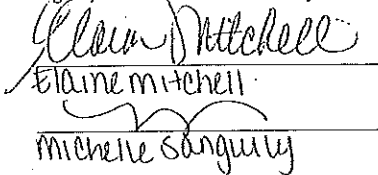 Elaine Mitchell
Elaine Mitchell
Michelle Sanguily